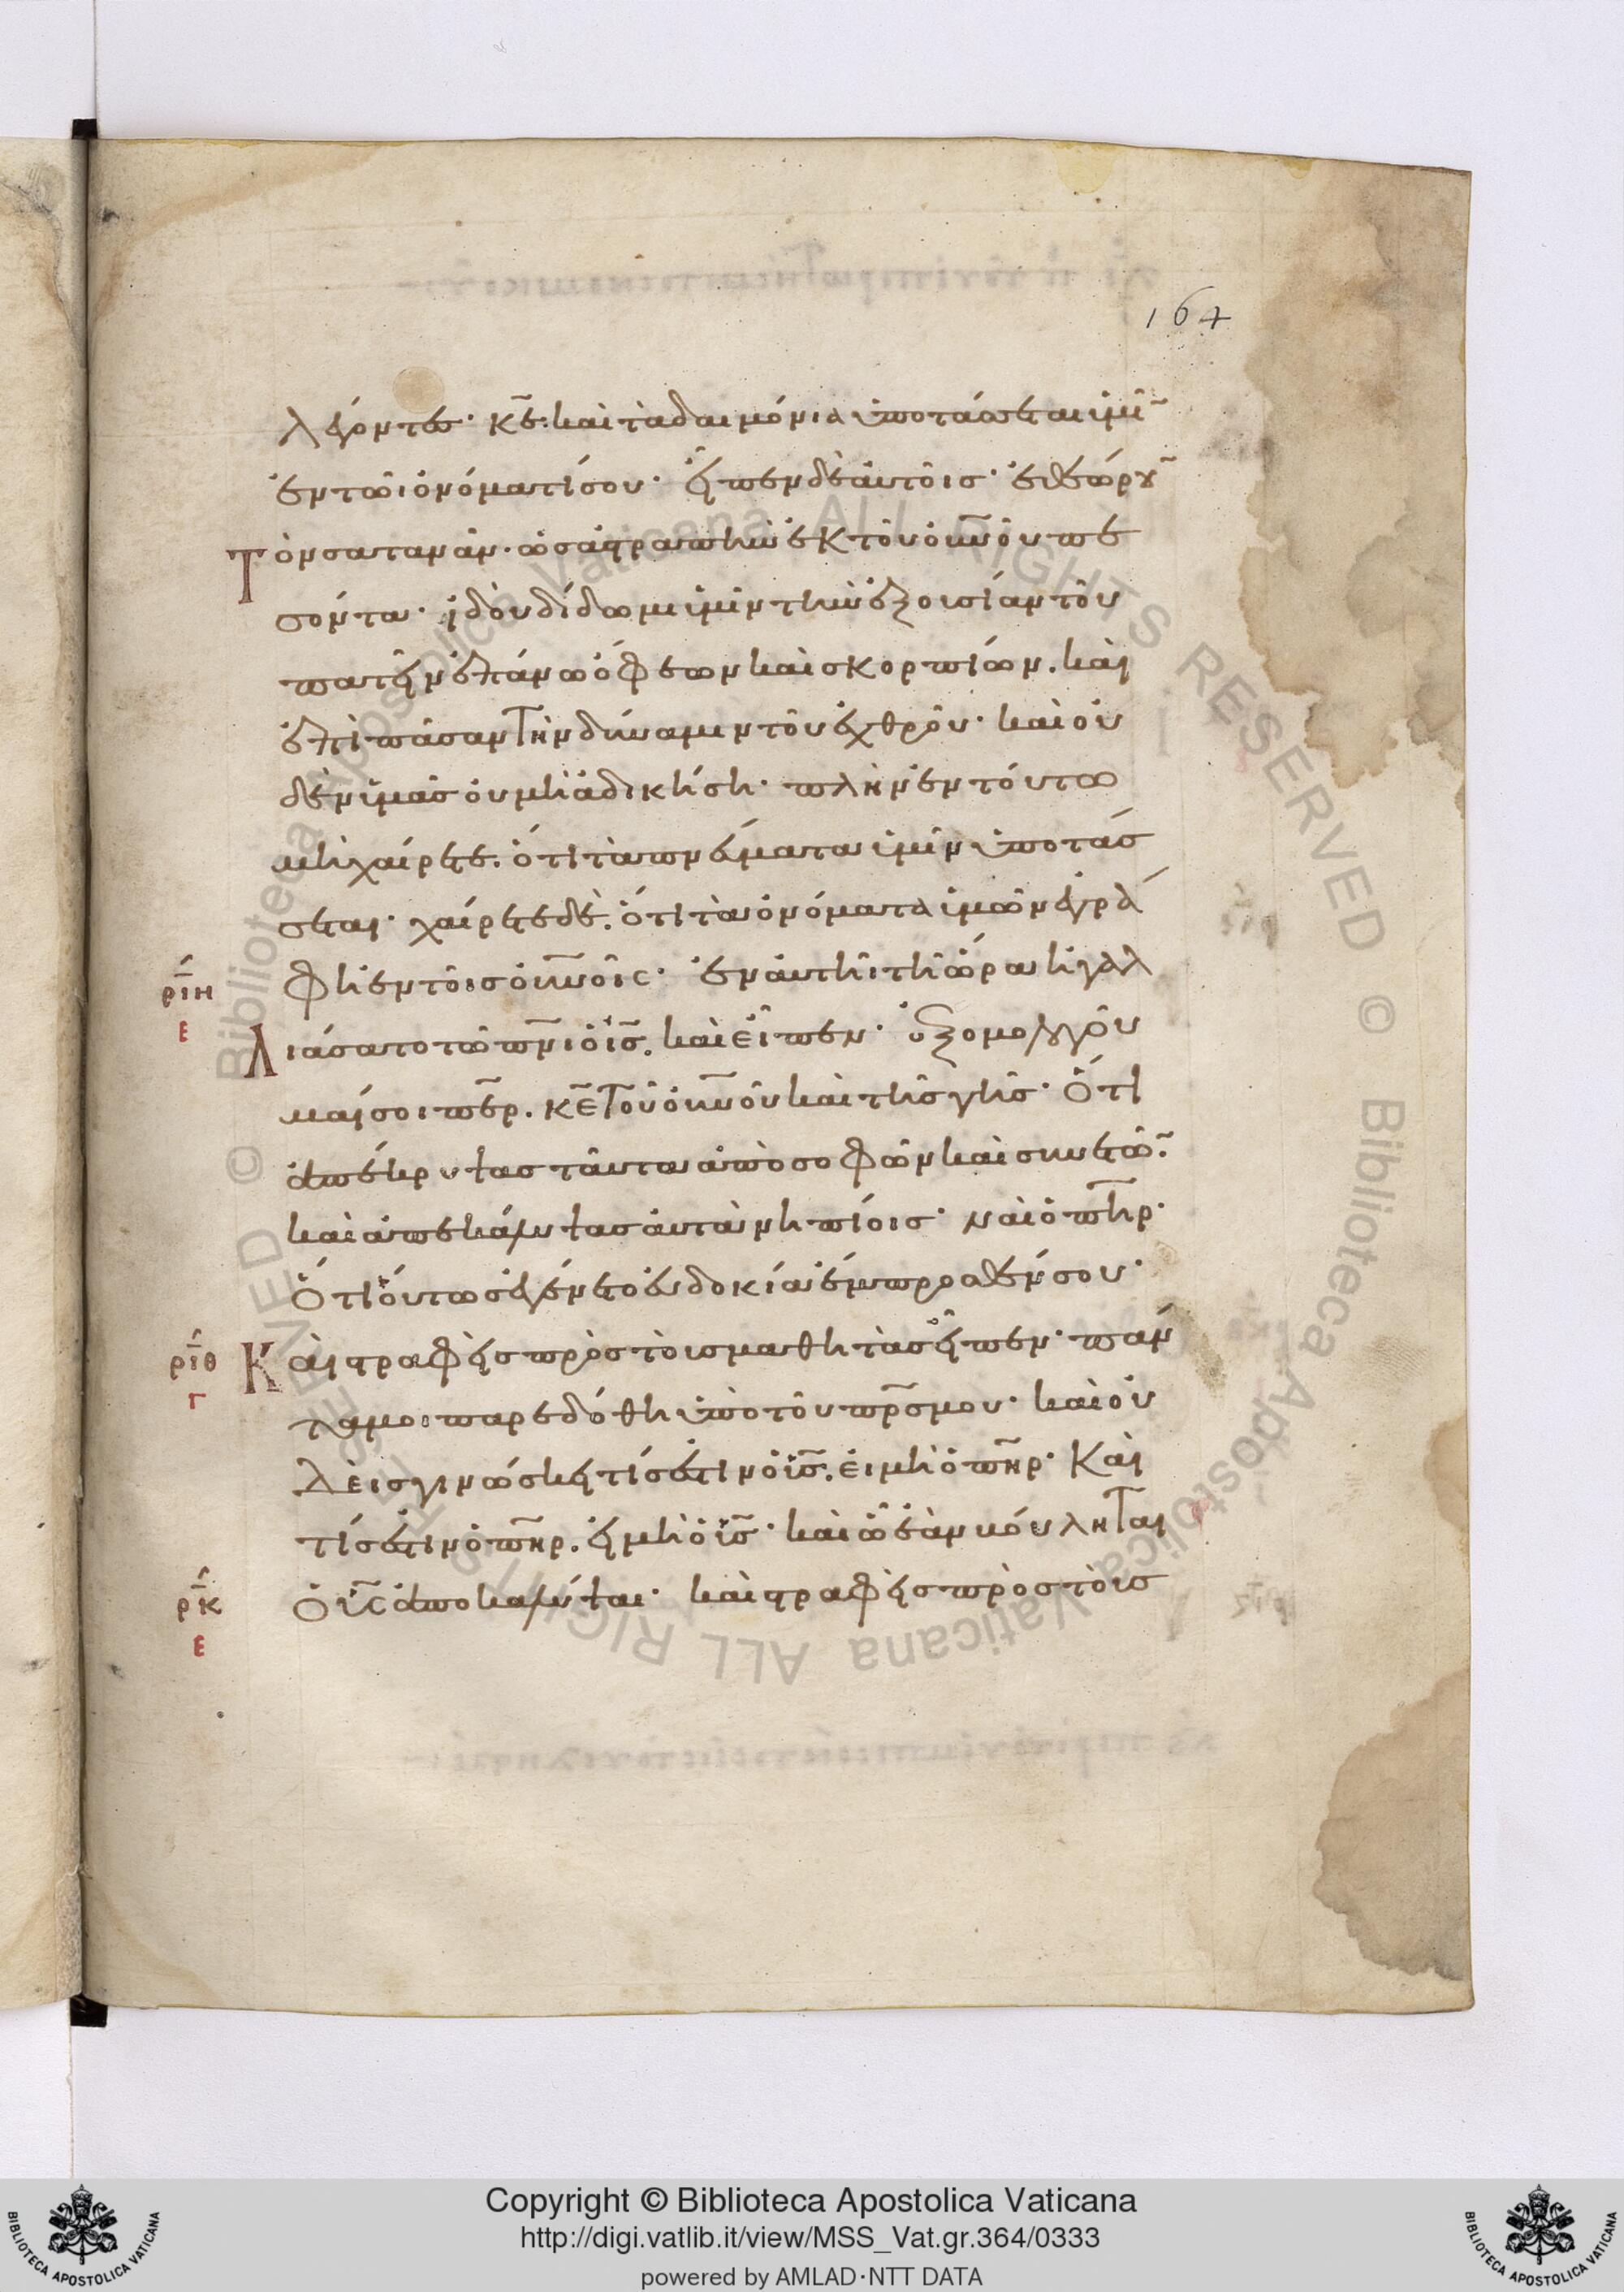 164
λέγοντες· κ̅ε̅· καὶ τὰ δαιμόνια ὑποτάσσεται ἡμῖ̅
ἐν τῶι ὀνόματί σου· εἶπεν δὲ αὐτοῖσ· ἐθεώρου̅
Τὸν σατανᾶν· ὡσ ἀστραπὴν ἐκ τοῦ οὐν̅οῦ πε
σόντα· ἰδοὺ δίδωμι ὑμῖν τὴν ἐξουσίαν τοῦ
πατεῖν ἐπάνω ὄφεων καὶ σκορπίων· καὶ
ἐπὶ πᾶσαν τὴν δύναμιν τοῦ ἐχθροῦ· καὶ οὐ
δὲν ὑμᾶσ οὐ μὴ ἀδικήση· πλὴν ἐν τούτω
μὴ χαίρετε· ὅτι τὰ πν̅έματα ὑμῖν ὑποτάσ
σεται· χαίρετε δὲ· ὅτι τὰ ὀνόματα ὑμῶν ἐγρά
ρι̅η
ε
φη ἐν τοῖσ οὐν̅οῖς· ἐν αὐτῆι τῆ ὥρα ἠγαλ
Λιάσατο τῶ πν̅ι ὁ ι̅σ̅· καὶ εἶπεν· ἐξομολογοῦ
μαί σοι πε̅ρ· κ̅ε̅ τοῦ οὐν̅οῦ καὶ τῆσ γῆσ· Ὅτι
ἀπέκρυψασ ταῦτα ἀπὸ σοφῶν καὶ συνετῶ̅·
καὶ ἀπεκάλυψασ αὐτὰ νηπίοισ· ναὶ ὁ πη̅ρ·
Ὅτι οὕτωσ ἐγένετο εὐδοκία ἔμπροσθέν σου·
ρι̅θ
γ
Καὶ στραφεὶσ πρὸσ τοὺσ μαθητὰσ εἶπεν· πάν
τα μοι παρεδόθη ὑπὸ τοῦ πρ̅σ μου· καὶ οὐ
δεὶσ γινώσκει τίσ ἐστιν ὁ υ̅ι̅σ̅· εἰ μὴ ὁ πη̅ρ· Καὶ
τίσ ἐστιν ὁ πη̅ρ· εἰ μὴ ὁ υ̅ι̅σ̅· καὶ ὧ ἐὰν βούληται
ρ̅κ
ε
Ὁ υ̅ι̅ς̅ ἀποκαλύψαι· καὶ στραφεὶσ πρὸσ τοὺσ
Copyright © Biblioteca Apostolica Vaticana
http://digi.vatlib.it/view/MSS_Vat.gr.364/0333
powered by AMLAD·NTT DATA
© Biblioteca Apostolica Vaticana ALL RIGHTS RESERVED © Biblioteca Apostolica Vaticana ALL RIGHTS RESERVED
BIBLIOTECA APOSTOLICA VATICANA
BIBLIOTECA APOSTOLICA VATICANA